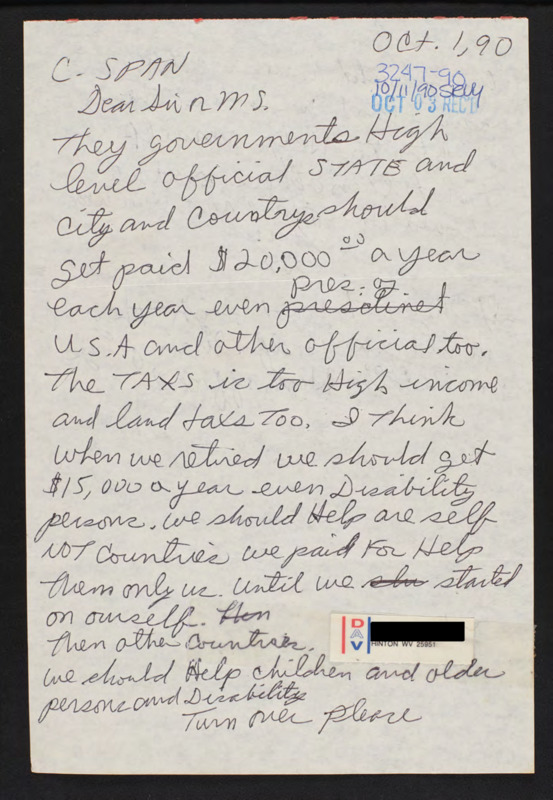 Oct. 1, 90
C. SPAN
3247-90
10/11/90
OCT 03 RECT
Dear Sir or MS.
They governments High
level official STATE and
city and Countrys should
get paid $20,000 00 a year
pres. of
each year even presedinet
U.S.A and other official too.
The TAXS is too High income
and land taxs Too. I Think
when we retired we should get
$15,000 a year even Disability
persons. we should Help are self
NOT Countries we paid For Help
them only us. until we started
on ourself. then
then other Countries.
DAV
HINTON WV 25951
we should Help children and older
persons and Disability
Turn over Please